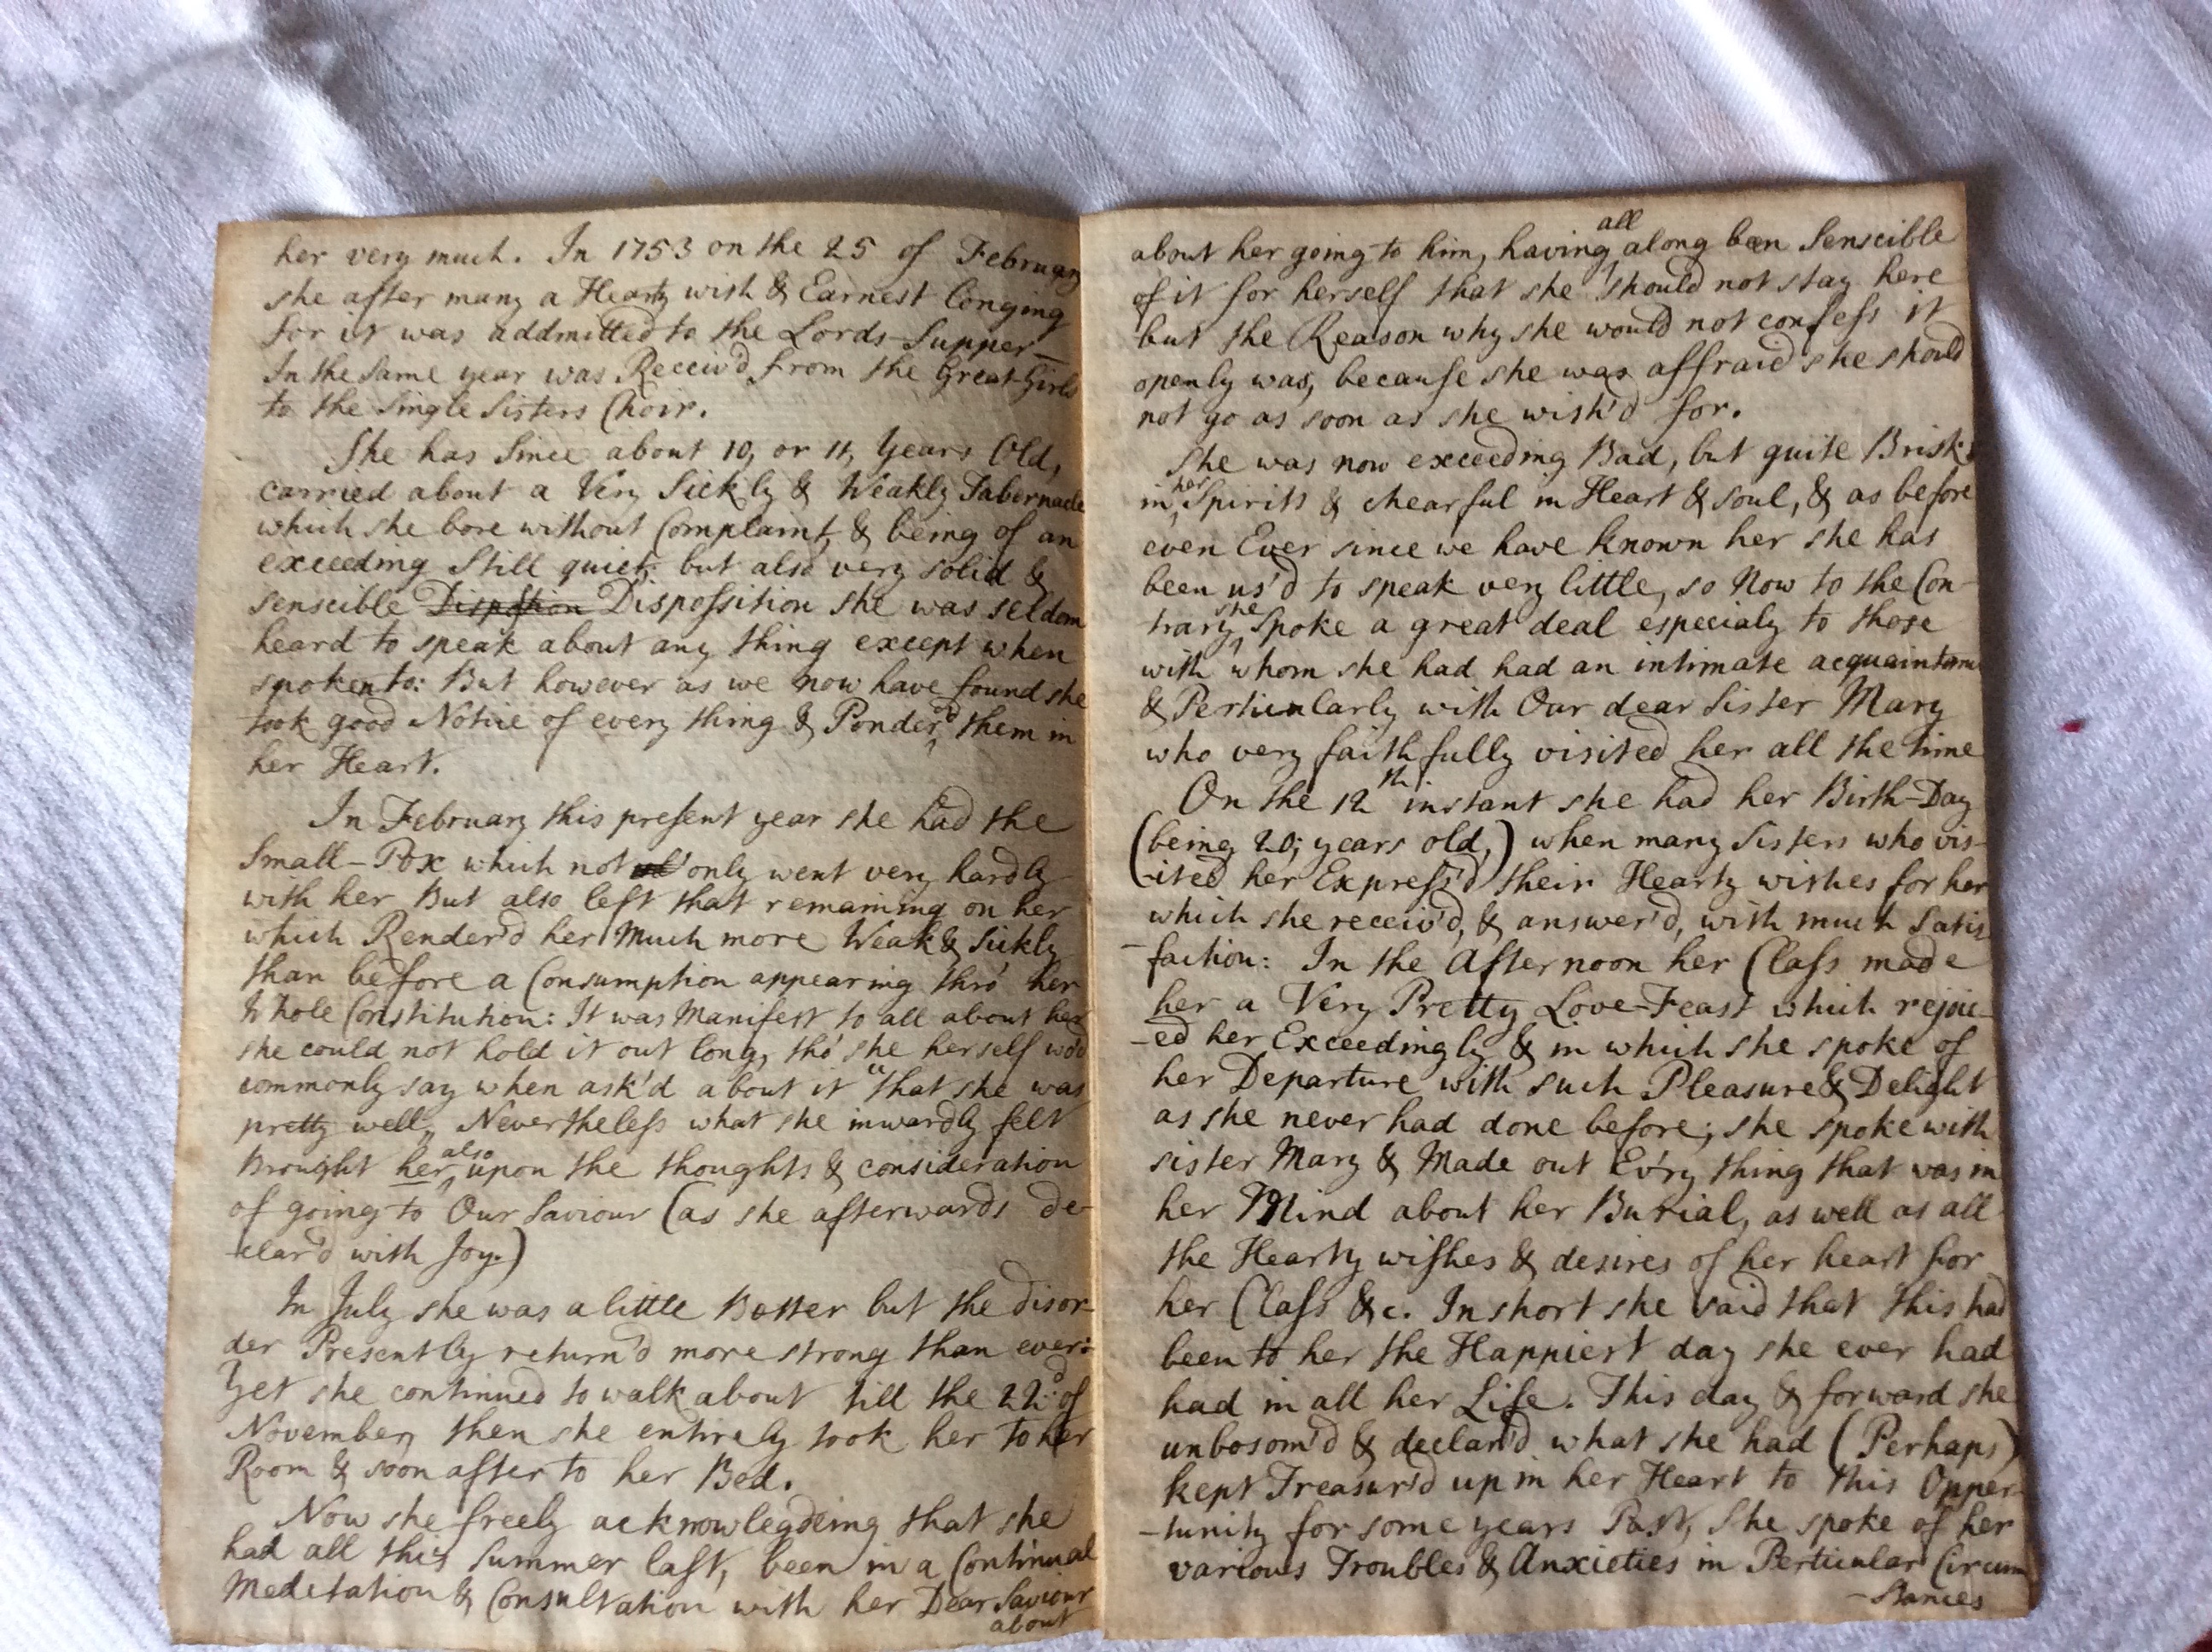 her very much. In 1753 on the 25 of February
she after many a Hearty wish & Earnest longing
for it was addmitted to the Lords-Supper—
In the same year was Receiv'd from the Great Girls
to the Single Sisters Choir.
She has Since about 10, or 11, Years Old,
carried about a Very Sickly & Weakly Tabernacle
which she bore without Complaint, & being of an
exceeding Still quiet, but also very solid &
senscible Dispostion Dispossition she was seldom
heard to speak about any thing except when
spoken to: But however as we now have found she
took good Notice of every thing & Ponder'd them in
her Heart.
In February this present year she had the
Small-Pox which not only went very hardly
with her But also left that remaining on her
which Render'd her Much more Weak & Sickly
than before a Consumption appearing thrò her
Whole Constitution: It was Manifest to all about her
she could not hold it out long, thò she herself wo'd
commonly say when ask'd about it "that she was
pretty well„ Nevertheless what she inwardly felt
Brought her also upon the thoughts & consideration
of going to Our Saviour (as she afterwards de-
-clar'd with Joy.)
In July she was a little Better but the disor-
der Presently return'd more strong than ever:
Yet she continued to walk about till the 22d of
November, then she entirely took her to her
Room & soon after to her Bed.
Now she freely acknowlegdeing that she
had all this Summer last, been in a Continual
Meditation & Consultation with her Dear Saviour
about
about her going to him, having all along been Senscible
of it for herself that she should not stay here
but the Reason why she would not confess it
openly was, because she was affraid she should
not go as soon as she wish'd for.
She was now exceeding Bad, but quite Brisk
in her Spirits & chearful in Heart & Soul, & as before
even Ever since we have known her she has
been us'd to speak very little, so Now to the Con-
trary she Spoke a great deal especialy to those
with whom she had had an intimate acquaintance
& Perticularly with Our dear Sister Mary
who very faithfully visited her all the time
On the 12th instant she had her Birth-Day
(being 20; years old,) when many Sisters who vis-
-ited her Express'd their Hearty wishes for her
which she receiv'd, & answer'd, with much Satis-
-faction: In the Afternoon her Class made
her a Very Pretty Love-Feast which rejoic-
-ed her Exceedingly & in which she spoke of
her Departure with such Pleasure & Delight
as she never had done before; she spoke with
sister Mary & Made out Ev'ry thing that was in
her Mind about her Burial, as well as all
the Hearty wishes & desires of her heart for
her Class &c. In short she said that this had
been to her the Happiest day she ever had
had in all her Life. This day & forward she
unbosom'd & declar'd what she had (Perhaps)
kept Treasur'd up in her Heart to this Opper-
-tunity for some years Past, She spoke of her
various Troubles & Anxieties in Perticular Circum
-stances